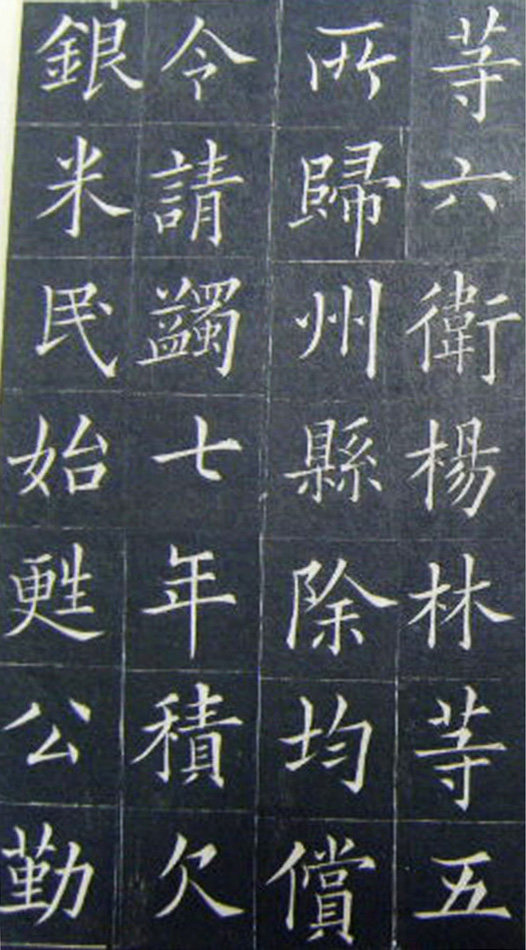 等六衛楊林等五
所歸州縣除均償
令請蠲七年積欠
銀米民始甦公勤